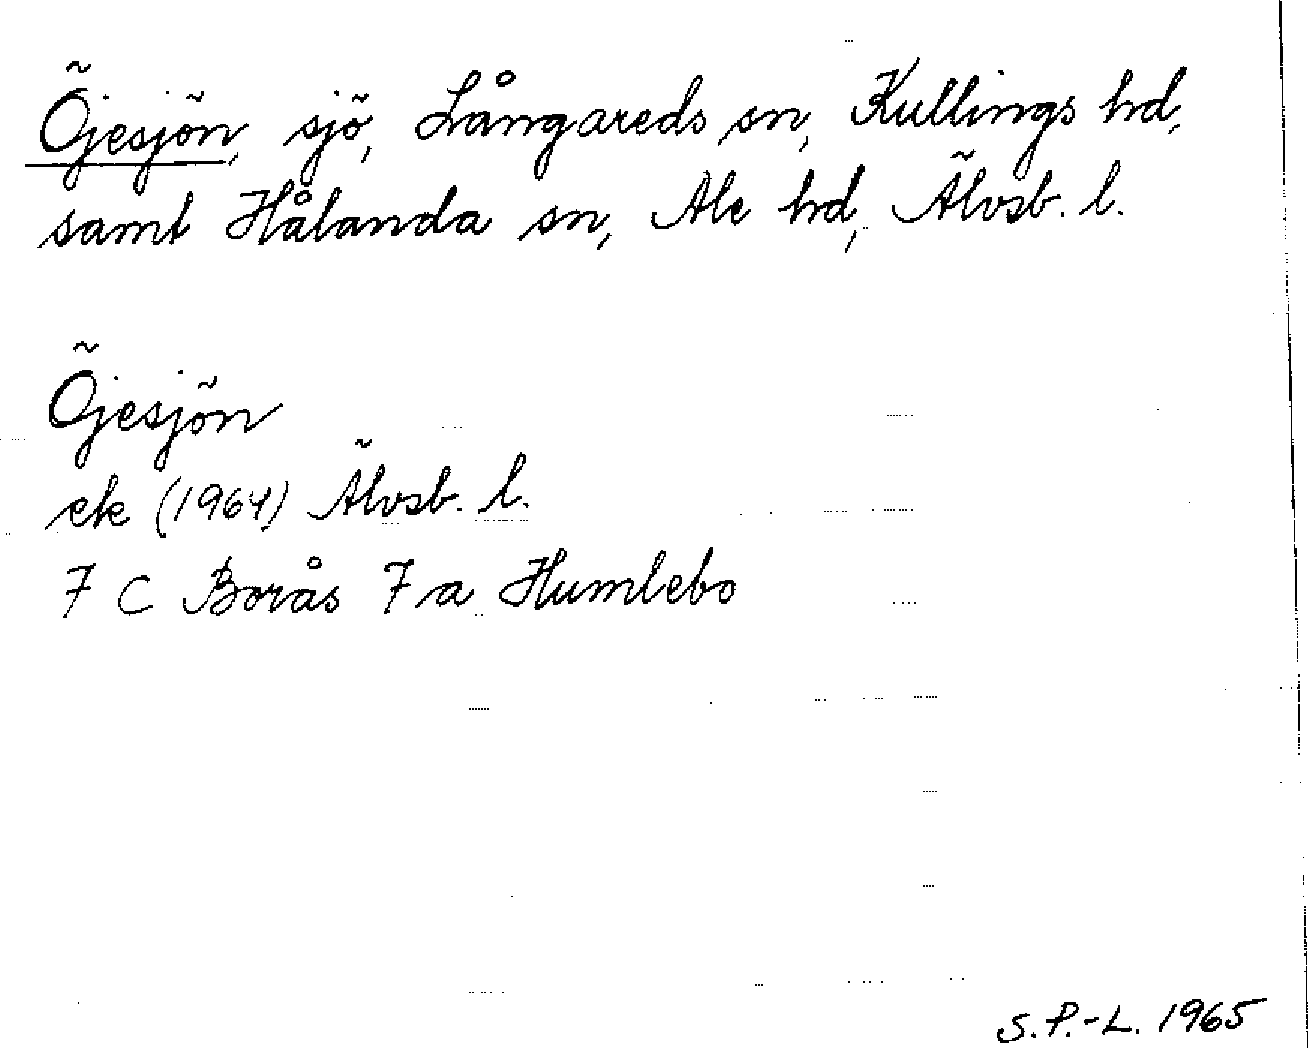 Öjesjön, sjö, Långareds sn, Kullings hd,
samt Hålanda sn, Ale hd, Älvsb. l.
Öjesjön
ek (1964) Älvsb. l.
7 C Borås 7 a Humlebo
S.P.-L. 1965